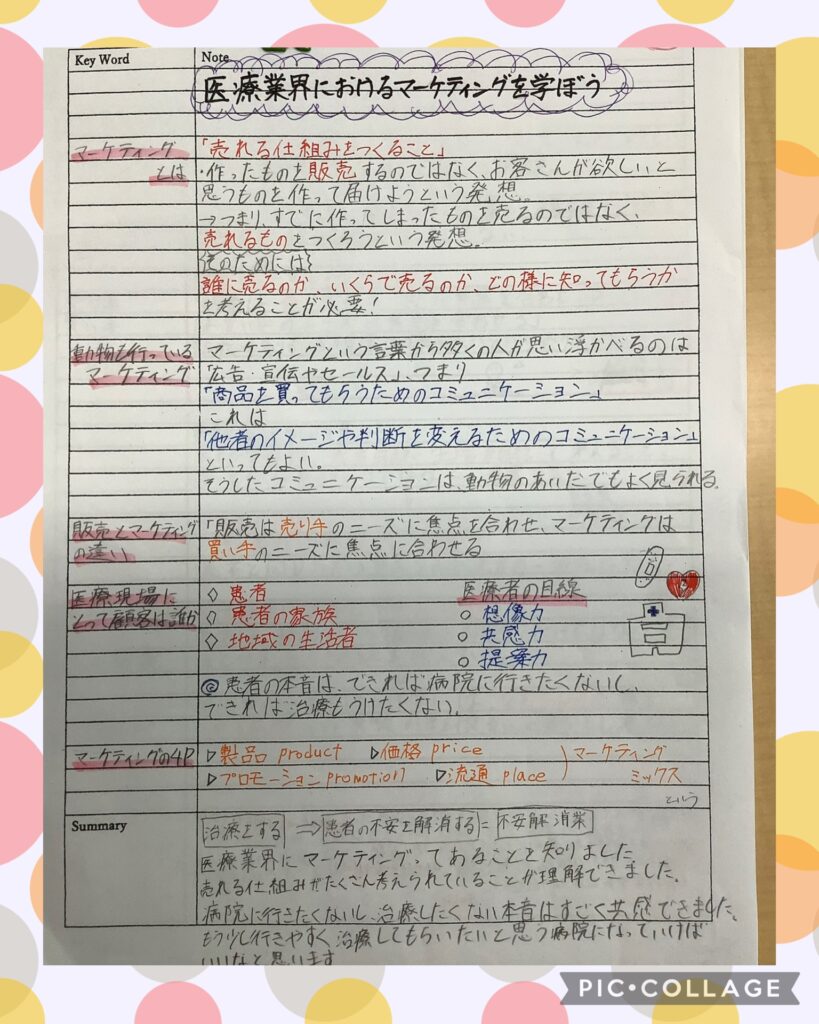 Key Word
Note
医療業界におけるマーケティングを学ぼう
マーケティング
とは
「売れる仕組みをつくること」
・作ったものを販売するのではなく、お客さんが欲しいと
思うものを作って届けようという発想。
→つまり、すでに作ってしまったものを売るのではなく、
売れるものをつくろうという発想。
のためには
誰に売るのか、いくらで売るのか、どの様に知ってもらうか
を考えることが必要!
動物も行っている
マーケティング
マーケティングという言葉から多くの人が思い浮かべるのは
「広告・宣伝やセールス」、つまり
「商品を買ってもらうためのコミュニケーション」
これは
「他者のイメージや判断を変えるためのコミュニケーション」
といってもよい。
そうしたコミュニケーションは、動物のあいだでもよく見られる。
販売とマーケティング
の違い
「販売は売り手のニーズに焦点を合わせ、マーケティングは
買い手のニーズに焦点に合わせる
医療現場に
とって顧客は誰か
◇ 患者
◇ 患者の家族
◇ 地域の生活者
医療者の目線
○ 想像力
○ 共感力
○ 提案力
◎患者の本音は、できれば病院に行きたくないし、
できれば治療もうけたくない。
マーケティングの4P
▷製品 product ▷価格 price
▷プロモーション promotion ▷流通 place
マーケティング
ミックス
という
Summary
治療をする ⇒ 患者の不安を解消する = 不安解消業
医療業界にマーケティングってあることを知りました。
売れる仕組みがたくさん考えられていることが理解できました。
病院に行きたくないし、治療したくない本音はすごく共感できました。
もう少し行きやすく治療してもらいたいと思う病院になっていけば
いいなと思います
PIC•COLLAGE